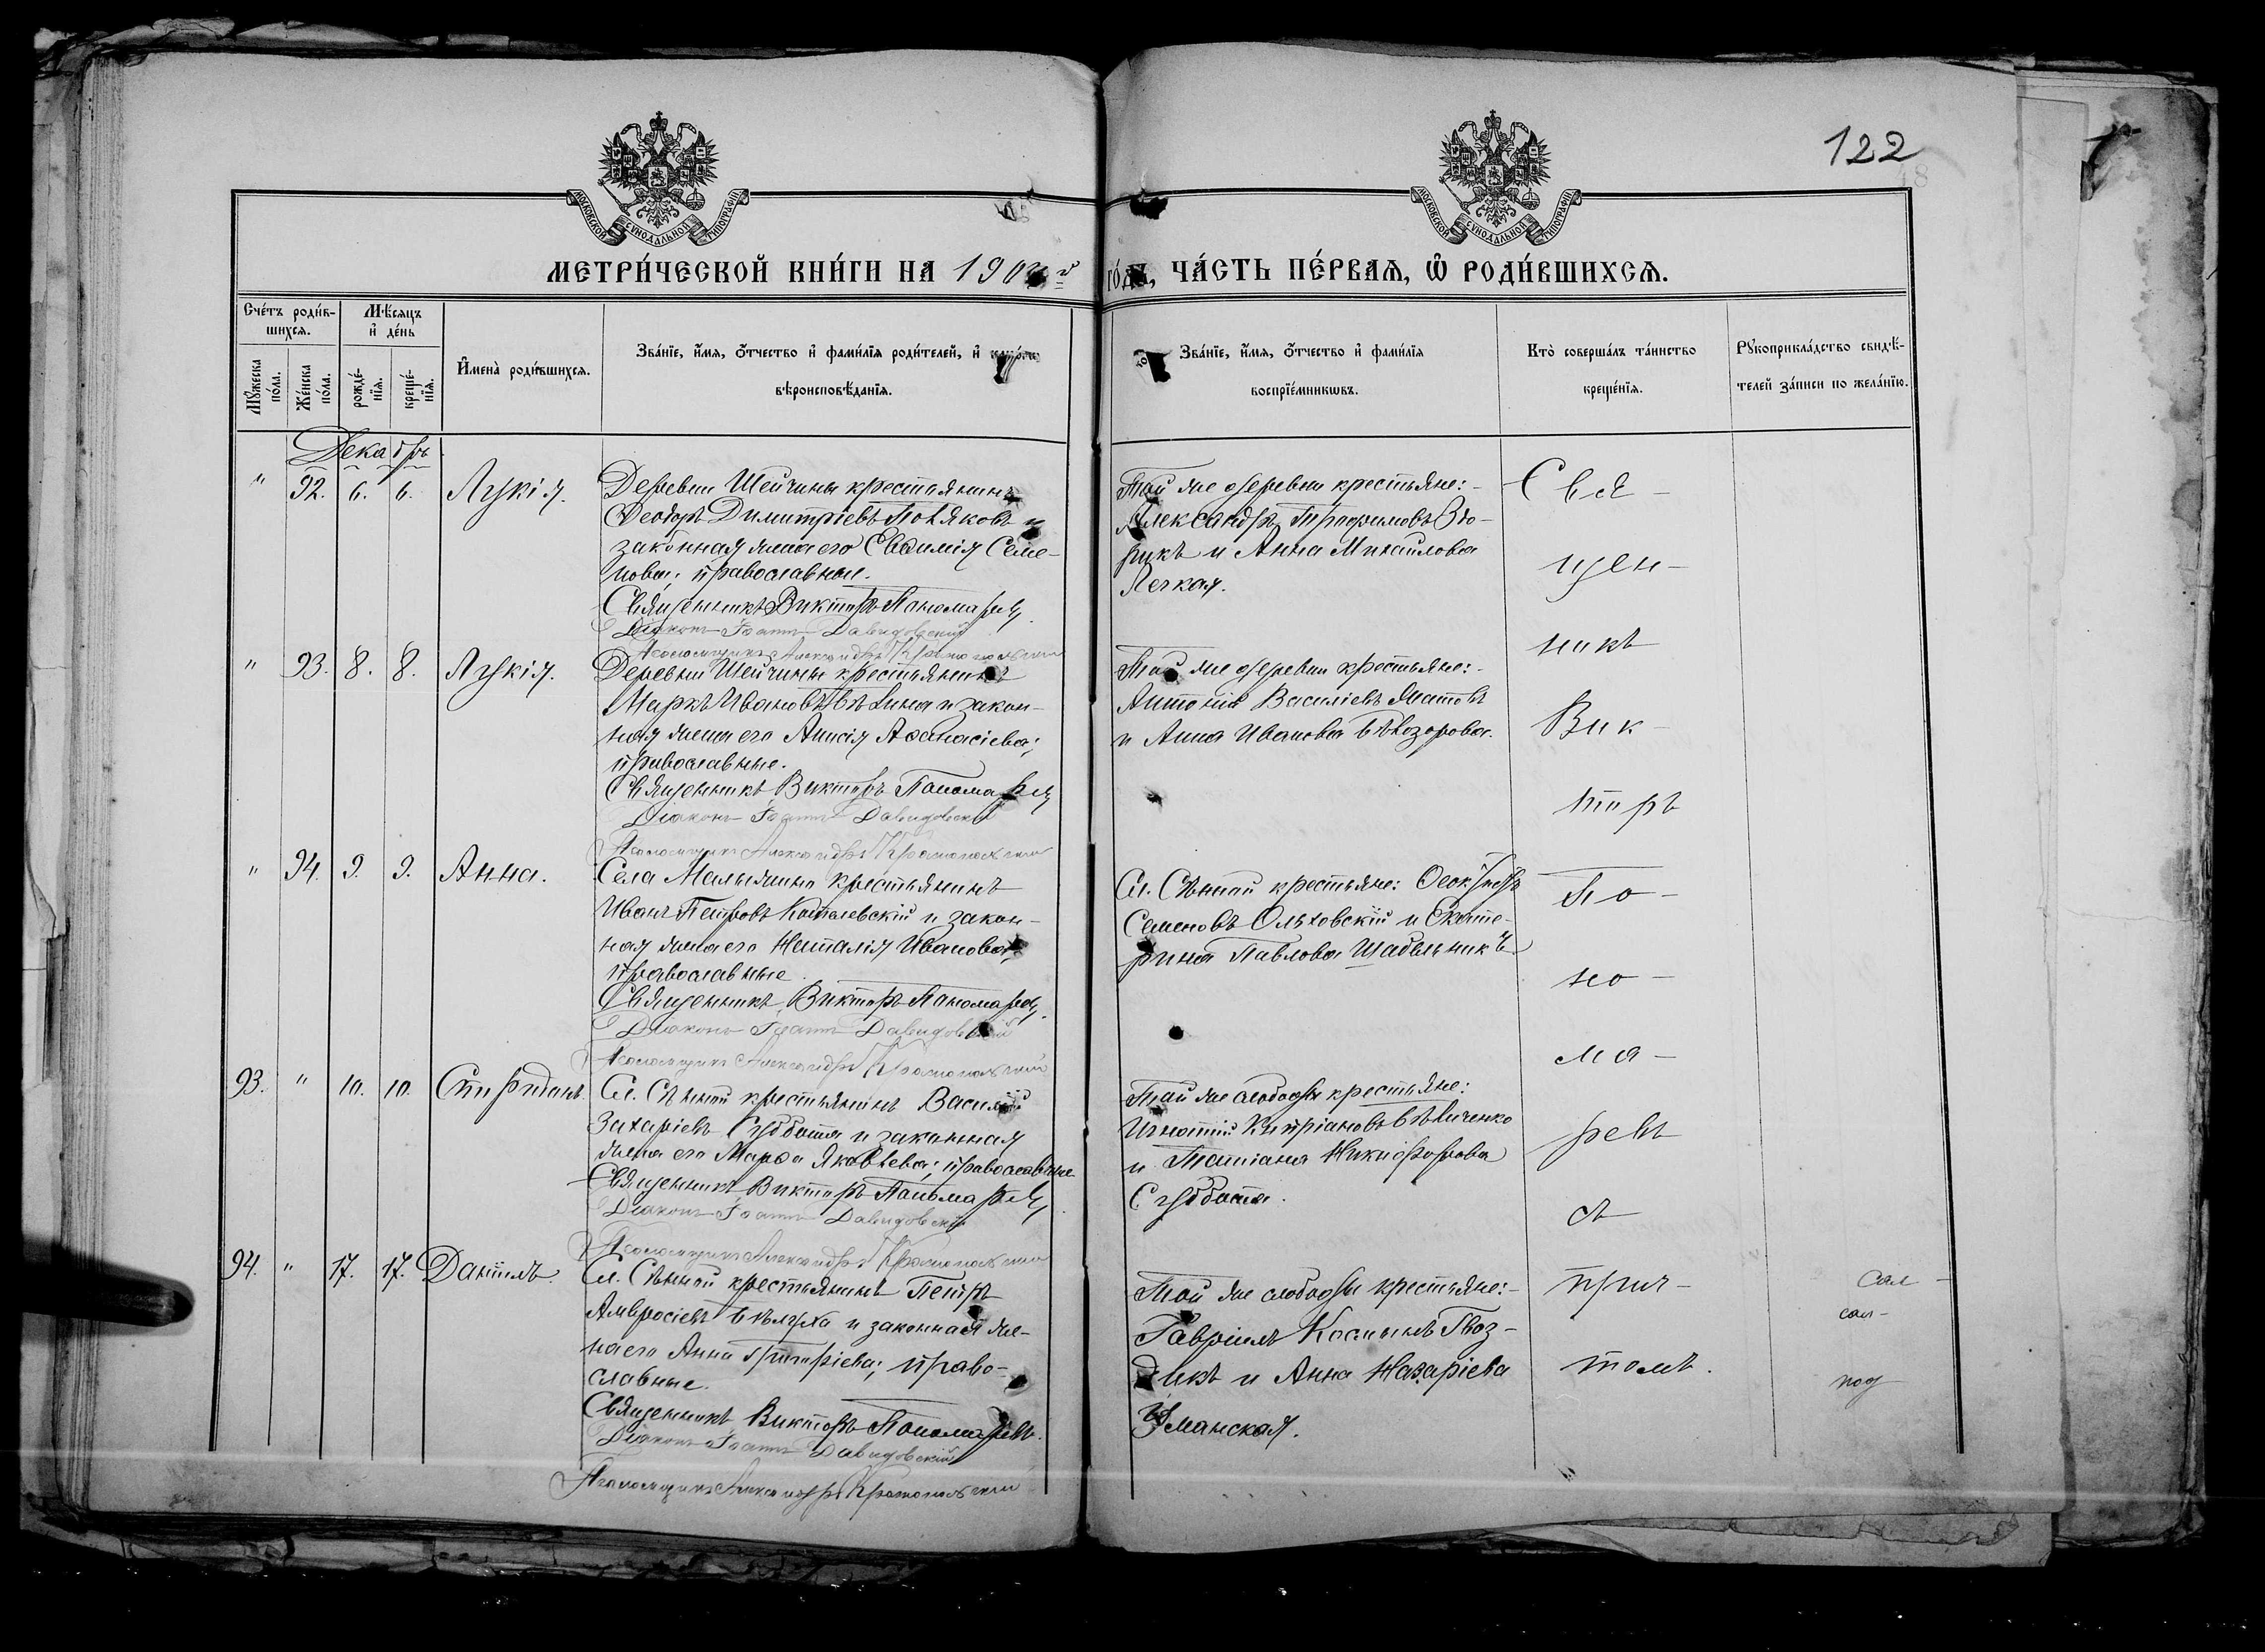 122
МОСКОВСКОЙ СѴНОДАЛЬНОЙ ТИПОГРАФІИ
МОСКОВСКОЙ СѴНОДАЛЬНОЙ ТИПОГРАФІИ
МЕТРИ́ЧЕСКОЙ КНИ́ГИ НА 190
го́дъ, ЧА́СТЬ ПЕ́РВАѦ, Ѡ҆ РОДИ́ВШИХСѦ.
Сче́тъ роди́в-
шихсѧ.
Мѣ́сѧцъ
и҆ де́нь
Мꙋ́жеска
по́ла.
Же́нска
по́ла.
рожде́-
нїѧ.
креще́-
нїѧ.
И҆мена̀ роди́вшихсѧ.
Зва́нїе, и҆́мѧ, ѻ҆́тчество и҆ фами́лїѧ роди́телей, и҆
вѣроисповѣ́данїѧ.
Зва́нїе, и҆́мѧ, ѻ҆́тчество и҆ фами́лїѧ
воспрїе́мникѡвъ.
Кто̀ соверша́лъ та́инство
креще́нїѧ.
Рꙋкоприкла́дство свидѣ́-
телей за́писи по жела́нїю.
Декабрь
" 92. 6. 6. Лукія.
Деревни Шейчины крестьянинъ
Ѳеодоръ Димитріевъ Поляковъ и
законная жена его Евѳимія Семе-
нова; православные.
Священникъ Викторъ Пономаревъ
Діаконъ Іоаннъ Давидовскій
Псаломщикъ Александръ
Той же деревни крестьяне:
Александръ Трофимовъ
рикъ и Анна Михайлова
Легкая.
" 93. 8. 8. Лукія.
Деревни Шейчины крестьянинъ
Маркъ Ивановъ и закон-
ная жена его Анисія Аѳанасіева;
православные.
Священникъ Викторъ Пономаревъ
Діаконъ Іоаннъ Давидовскій
Псаломщикъ Александръ
Той же деревни крестьяне:
Антоній Василіевъ
и Анна Иванова Бѣлозорова.
" 94. 9. 9. Анна.
Села Малыжина крестьянинъ
Иванъ Петровъ Ковалевскій и закон-
ная жена его Наталія Иванова;
православные.
Священникъ Викторъ Пономаревъ
Діаконъ Іоаннъ Давидовскій
Псаломщикъ Александръ
Сл. Сѣнной крестьяне:
Семеновъ Ольховскій и Екате-
рина Павлова Шабельникъ
93. " 10. 10. Спиридонъ.
Сл. Сѣнной крестьянинъ Василій
Захаріевъ Суббота и законная
жена его Марѳа Яковлева; православные
Священникъ Викторъ Пономаревъ
Діаконъ Іоаннъ Давидовскій
Псаломщикъ Александръ
Той же слободы крестьяне:
Игнатій Кипріановъ Бѣличенко
и Татіана Никифорова
Суббота.
94. " 17. 17. Даніилъ.
Сл. Сѣнной крестьянинъ Петръ
Амвросіевъ Бѣлуха и законная же-
на его Анна Григоріева; право-
славные.
Священникъ Викторъ Пономаревъ.
Діаконъ Іоаннъ Давидовскій
Псаломщикъ Александръ
Той же слободы крестьяне:
Гавріилъ Косминъ Гвоз-
дикъ и Анна Назаріева
Уманская.
Свя-
щен-
никъ
Вик-
торъ
По-
но-
ма-
ревъ
съ
прич-
томъ.